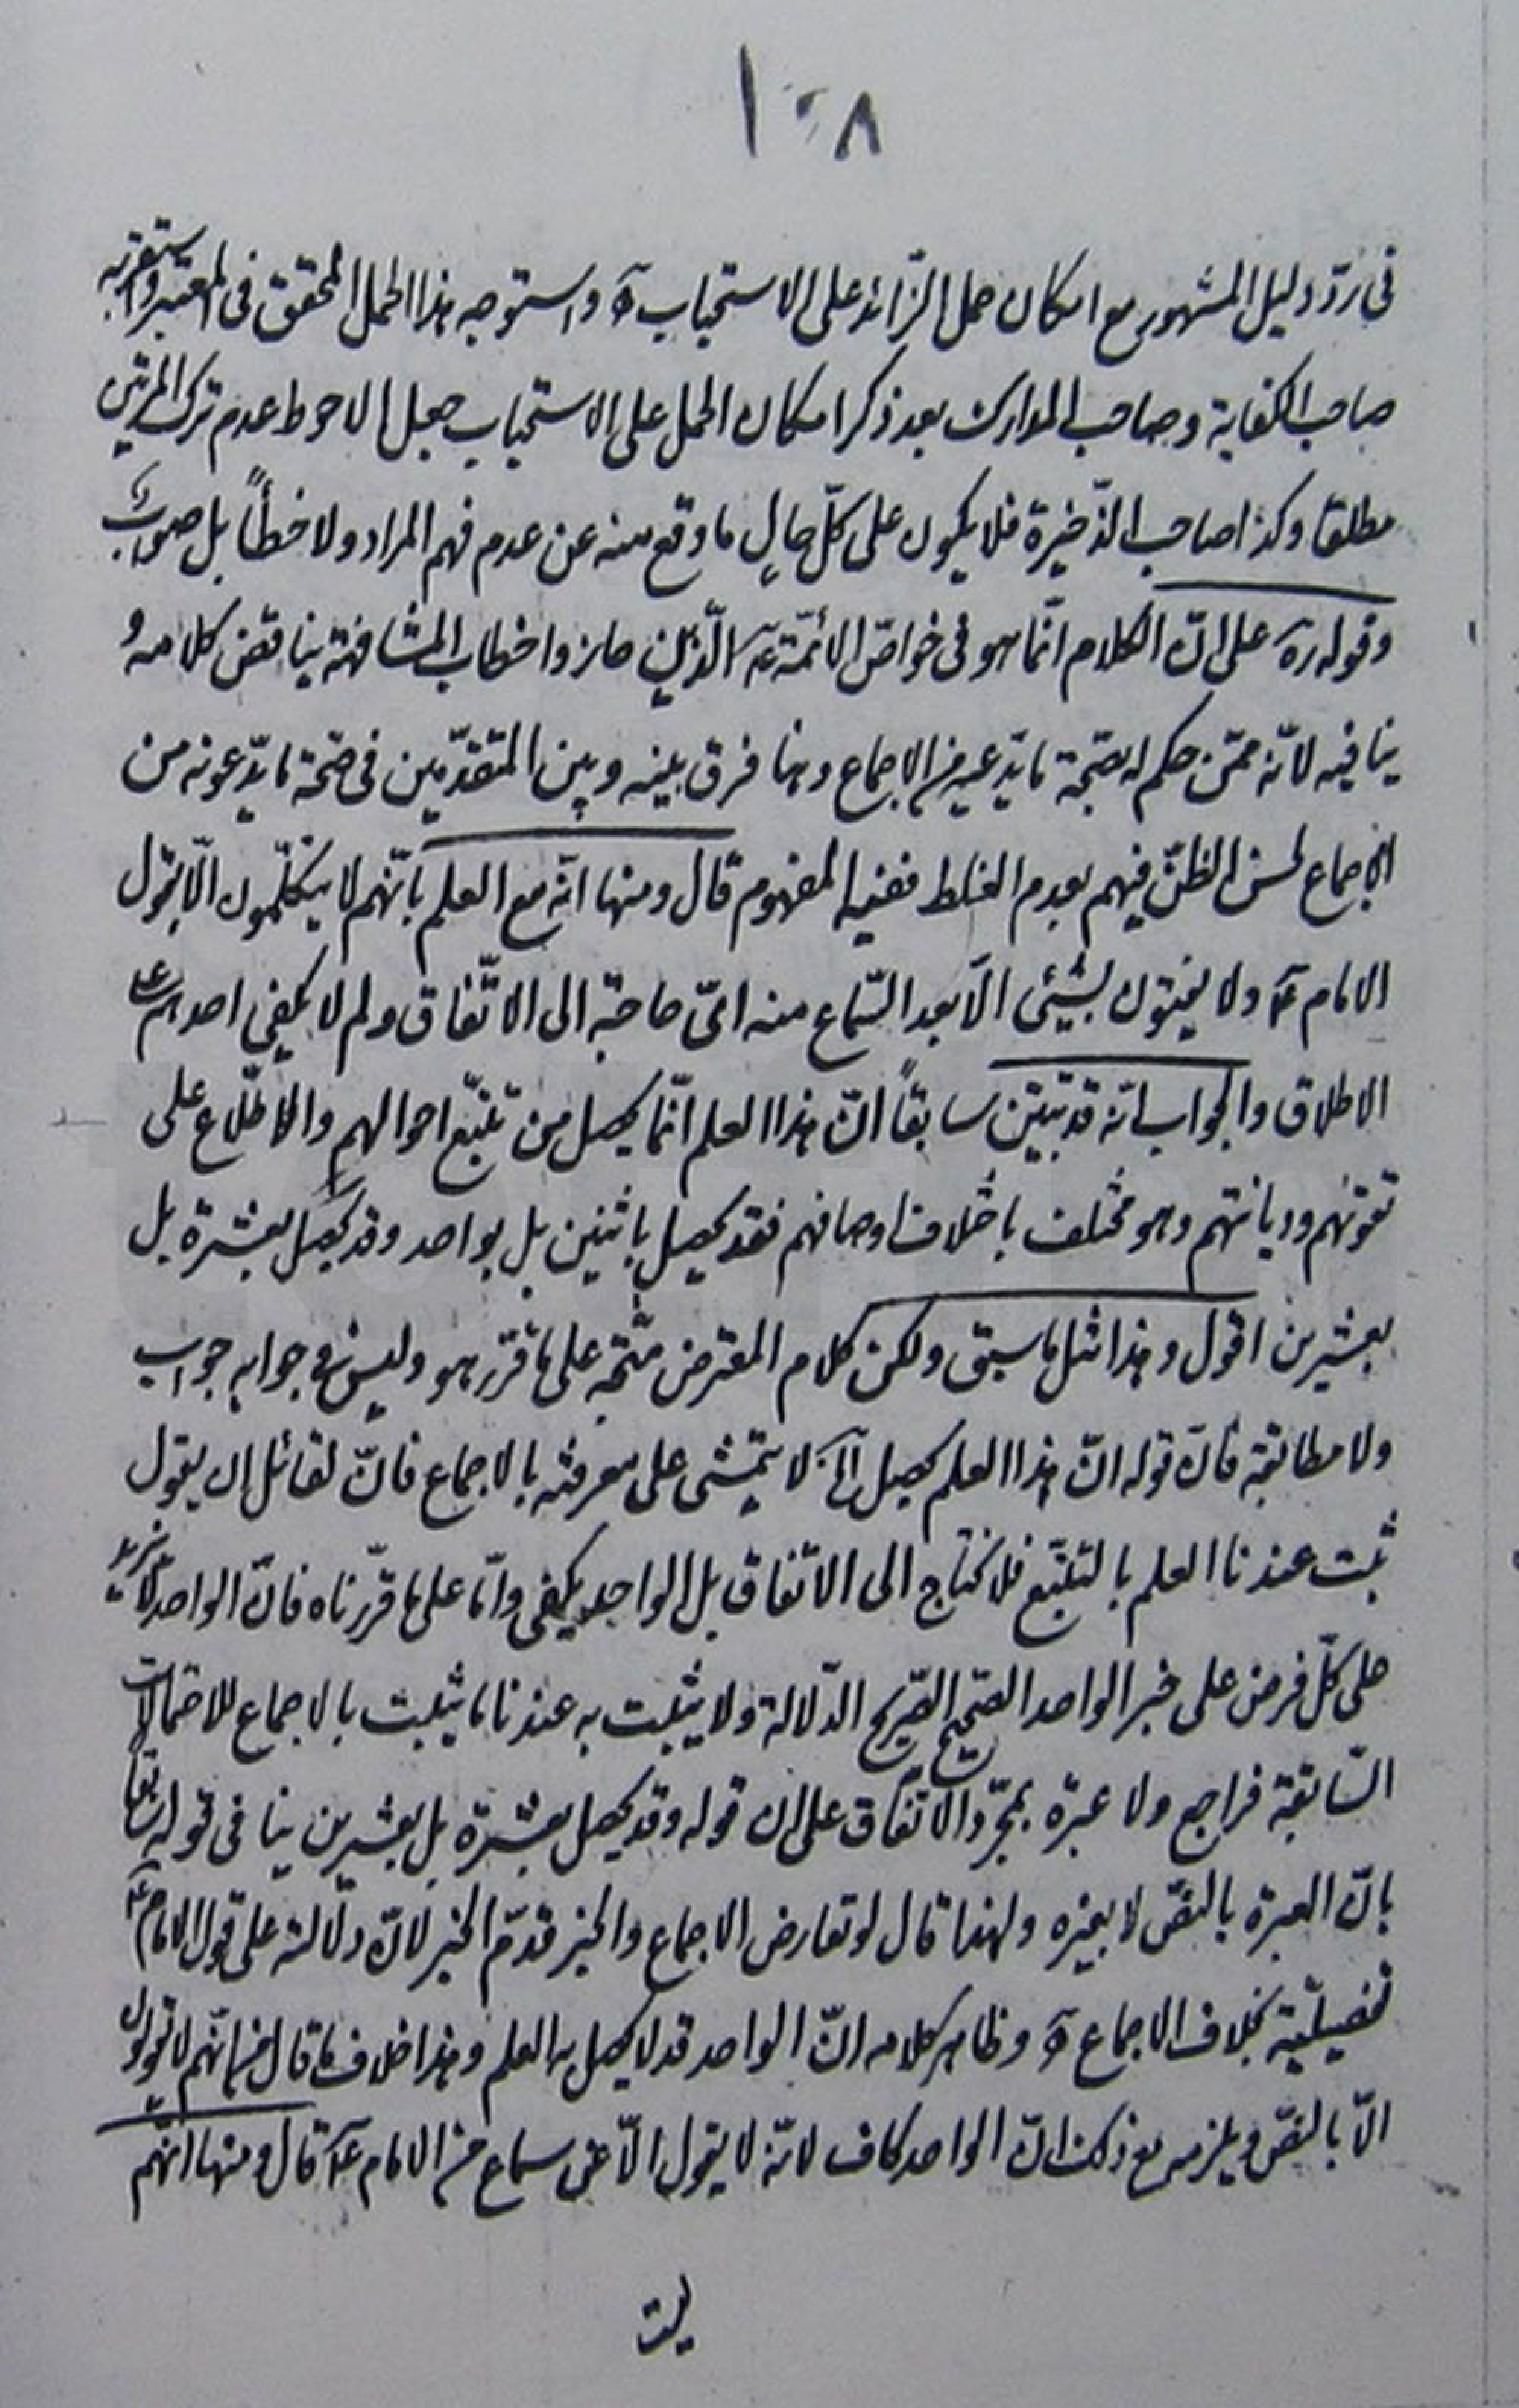 ١٠٨
فى ردّ دليل المشهور مع امكان حمل الزّائد على الاستحباب آه واستوجه هذا الحمل المحقق فى المعتبر واستقربه
صاحب الكفاية وصاحب المدارك بعد ذكر امكان الحمل على الاستحباب جعل الاحوط عدم ترك المرتين
مطلقا وكذا صاحب الذّخيرة فلا يكون على كلّ حالٍ ما وقع منه عن عدم فهم المراد ولا خطأً بل صواب
وقوله ره على انّ الكلام انّما هو فى خواصّ الائمّة ع الّذين حازوا خطاب المشافهة يناقض كلامه و
ينافيه لانّه ممّن حكم له بصحّة ما يدّعيه من الاجماع وهنا فرق بينه وبين المتقدّمين فى صحّة ما يدّعونه من
الاجماع لحسن الظنّ فيهم بعدم الغلط ففيه المفهوم قال ومنها انّه مع العلم بانّهم لا يتكلّمون الّا بقول
الامام ع ولا يفتون بشيئ الّا بعد السّماع منه اىّ حاجة الى الاتّفاق ولم لا يكفي احدهم على
الاطلاق والجواب انّه قد تبيّن سابقاً انّ هذا العلم انّما يحصل من تتبّع احوالهم والاطّلاع على
تقوٰيهم وديانتهم وهو مختلف باختلاف اوصافهم فقد يحصل باثنين بل بواحد وقد يحصل بعشرة بل
بعشرين اقول وهذا مثل ما سبق ولكن كلام المعترض متّجه على ما قرّر هو وليس فى جوابه جواب
ولا مطابقة فانّ قوله انّ هذا العلم يحصل الخ لا يتمشّى على معرفته بالاجماع فانّ لقائل ان يقول
ثبت عندنا العلم بالتتبّع فلا نحتاج الى الاتّفاق بل الواحد يكفي وامّا على ما قرّرناه فانّ الواحد لا يزيد
على كلّ فرض على خبر الواحد الصّحيح الصّريح الدّلالة ولا يثبت به عندنا ما يثبت بالاجماع للاحتمالات
السّابقة فراجع ولا عبرة بمجرّد الاتّفاق على ان قوله وقد يحصل بعشرة بل بعشرين ينافى قوله سابقا
بانّ العبرة بالنصّ لا بغيره ولهذا قال لو تعارض الاجماع والخبر قدّم الخبر لانّ دلالته على قول الامام ع
تفصيليّة بخلاف الاجماع آه وظاهر كلامه انّ الواحد قد لا يحصل به العلم وهذا خلاف ما قال انهم لا يقولون
الّا بالنصّ ويلزمه مع ذلك انّ الواحد كاف لانّه لا يقول الّا عن سماع من الامام ع قال ومنها انّهم
ليت